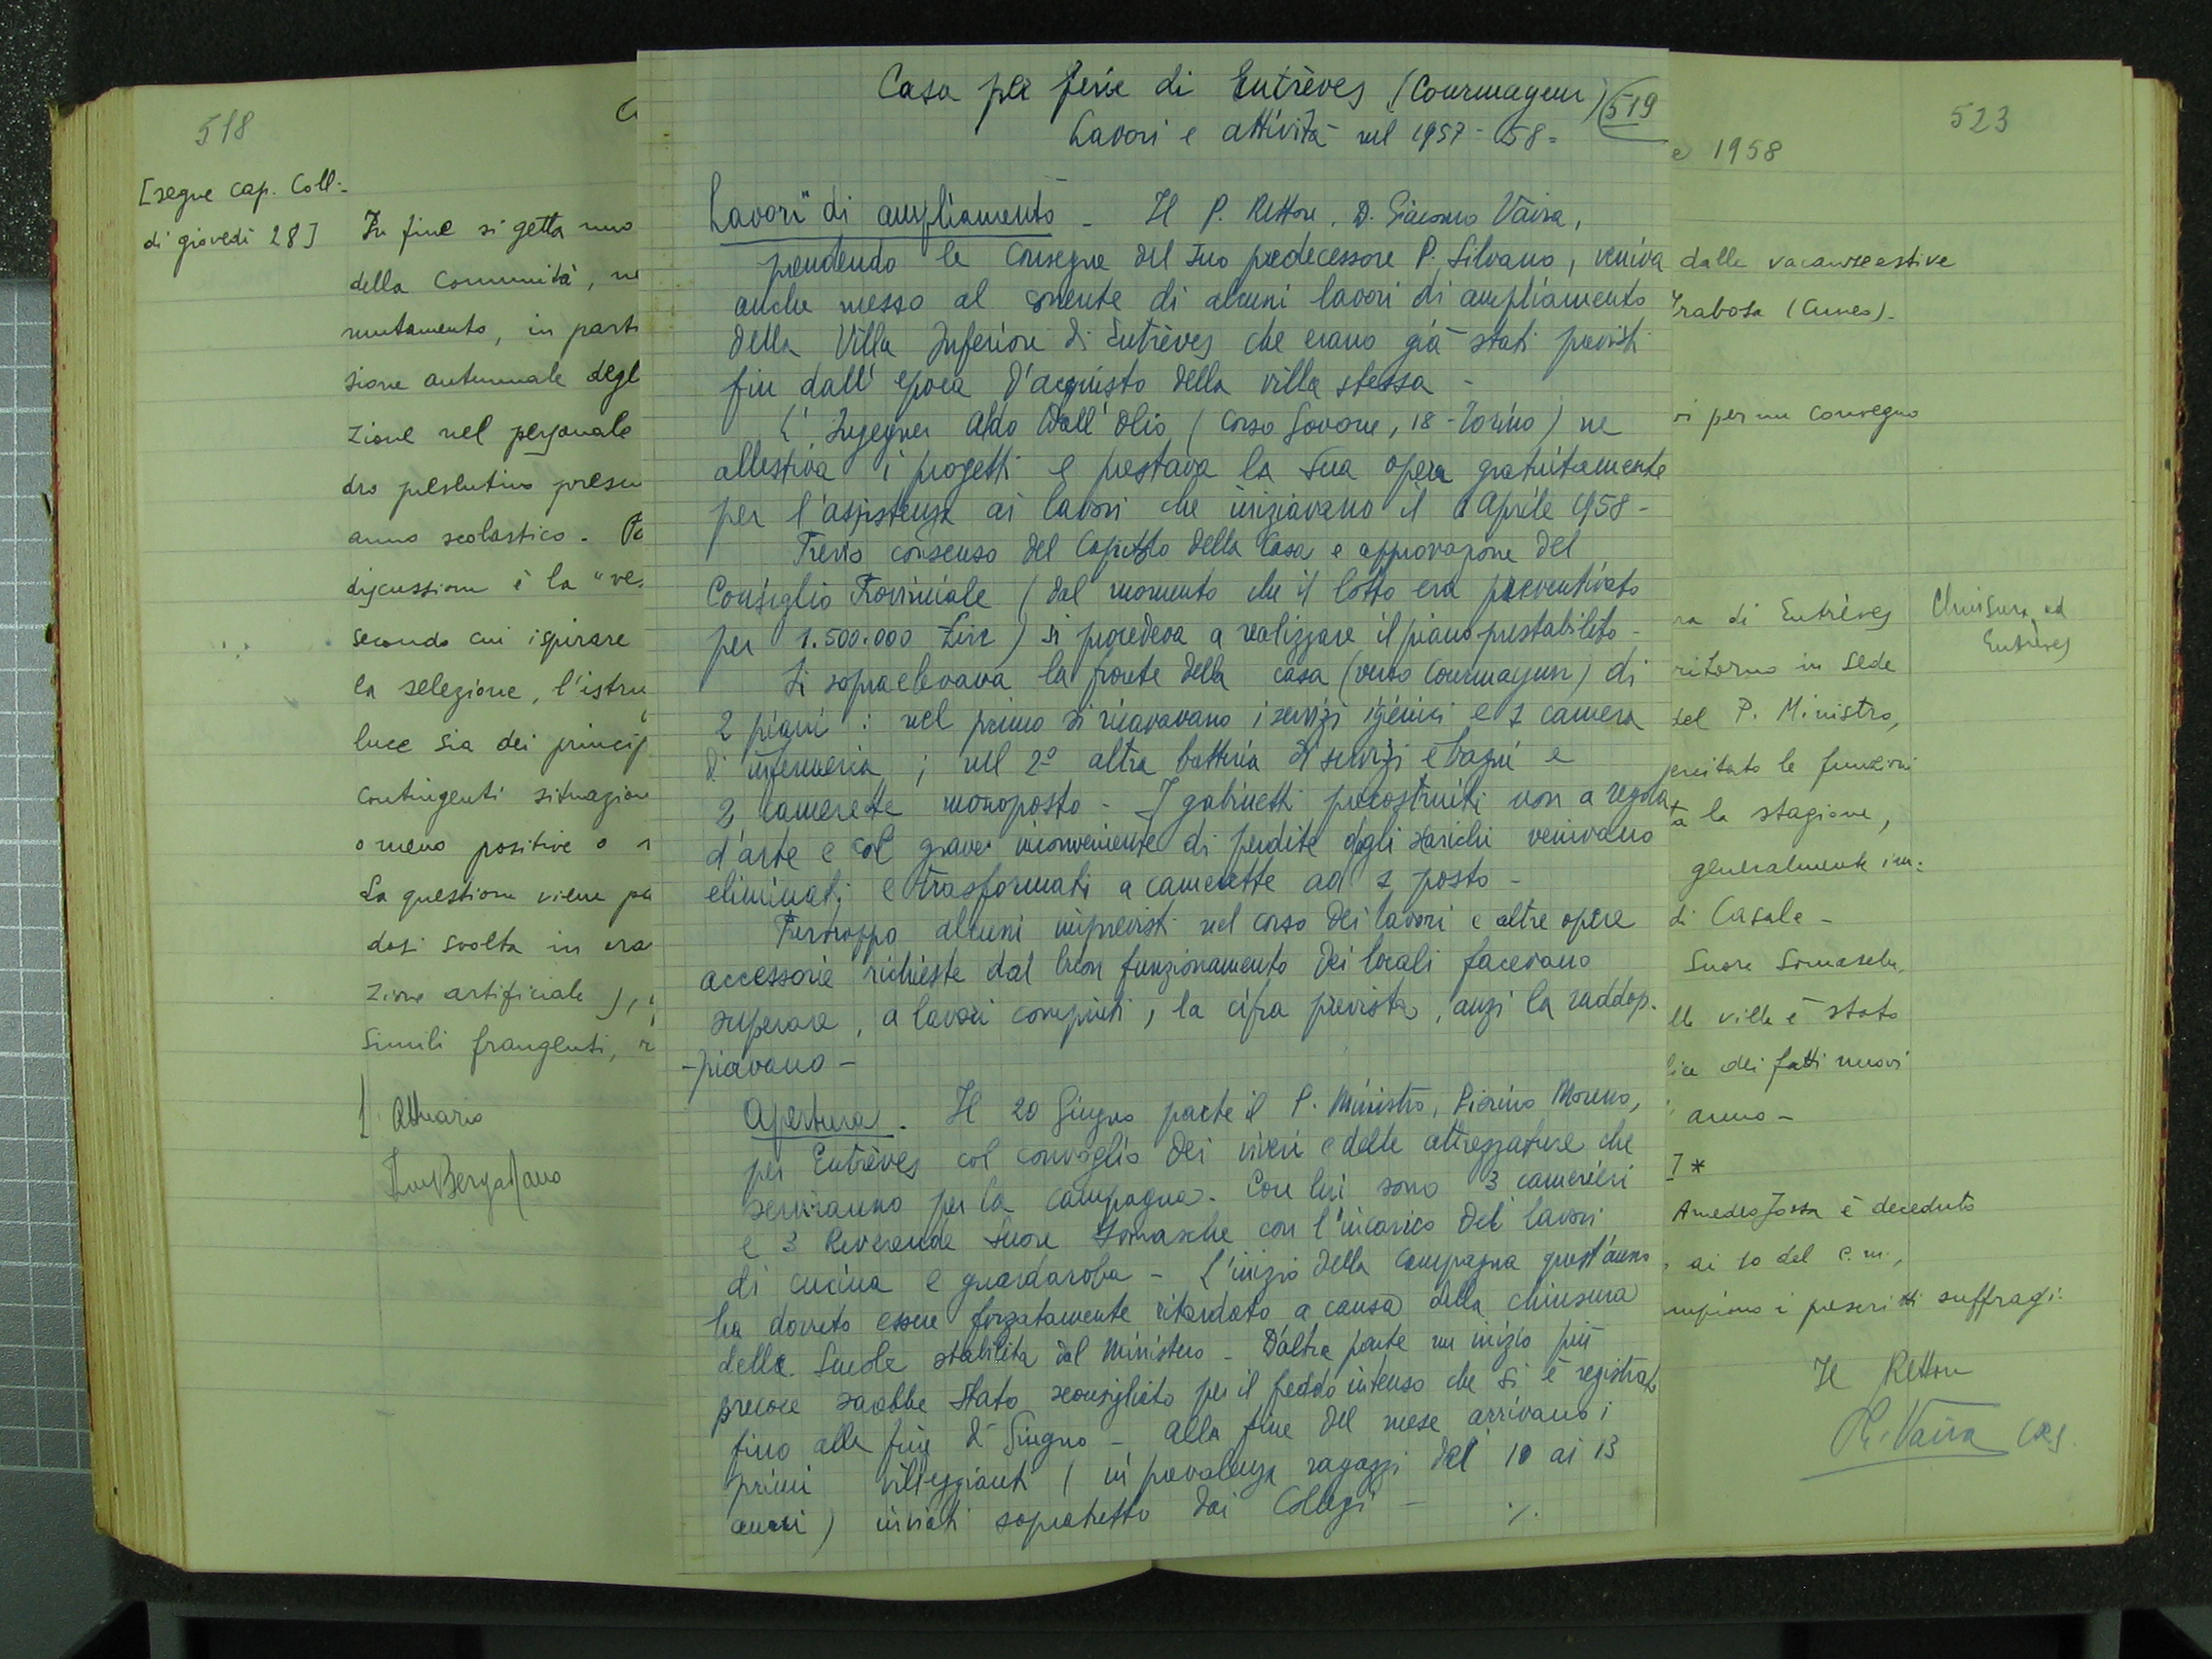 518
[segue Cap. Coll:
di giovedì 28]
In fine si getta uno
della Comunità, ne
mutamento, in parti
sione autunnale degl
zione nel personale
dro preslutivo presen
anno scolastico. Pa
discussione è la "ve
secondo cui ispirare
la selezione, l'istru
luce sia dei princip
contingenti situazion
o meno positive o
La questione viene pa
dosi svolta in
zione artificiale),
simili frangenti, r
l' Attuario
Casa per ferie di Entrèves (Courmayeur) 519
Lavori e attività nel 1957-58=
Lavori di ampliamento - Il P. Rettore, D. Giacomo Vaira,
prendendo le consegne del suo predecessore P. Silvano, veniva
anche messo al corrente di alcuni lavori di ampliamento
della Villa Inferiore di Entrèves che erano già stati previsti
fin dall'epoca d'acquisto della villa stessa -
L'Ingegner Aldo Dall'Olio (Corso Govone, 18 - Torino) ne
allestiva i progetti e prestava la sua opera gratuitamente
per l'assistenza ai lavori che iniziavano il 1 Aprile 1958 -
Previo consenso del Capitolo della Casa e approvazione del
Consiglio Provinciale (dal momento che il lotto era preventivato
per 1.500.000 Lire) si procedeva a realizzare il piano prestabilito -
Si sopraelevava la fronte della casa (verso Courmayeur) di
2 piani : nel primo si ricavavano i servizi igienici e 1 camera
d'infermeria ; nel 2º altra batteria di servizi e bagni e
2 camerette monoposto - I gabinetti precostruiti non a regola
d'arte e col grave inconveniente di perdite dagli scarichi venivano
eliminati e trasformati a camerette ad 1 posto -
Purtroppo alcuni imprevisti nel corso dei lavori e altre opere
accessorie richieste dal buon funzionamento dei locali facevano
superare, a lavori compiuti, la cifra prevista, anzi la raddop-
-piavano -
Apertura. Il 20 Giugno parte il P. Ministro, Pierino Moreno,
per Entrèves col convoglio dei viveri e delle attrezzature che
serviranno per la campagna. Con lui sono 3 camerieri
e 3 Reverende Suore Somasche con l'incarico dei lavori
di cucina e guardaroba - L'inizio della campagna quest'anno
ha dovuto essere forzatamente ritardato a causa della chiusura
delle Scuole stabilita dal Ministero - D'altra parte un inizio più
precoce sarebbe stato sconsigliato per il freddo intenso che si è registrato
fino alla fine di Giugno - Alla fine del mese arrivano i
primi villeggianti (in prevalenza ragazzi dai 10 ai 13
anni) inviati sopratutto dai Collegi - ./.
523
e 1958
dalle vacanze estive
Frabosa (Cuneo).
vi per un convegno
ra di Entrèves
Chiusura ad
Entrèves
ritorno in sede
del P. Ministro,
ercitato le funzioni
ta la stagione,
generalmente im:
di Casale -
Suore Somasche,
lle ville è stato
lice dei fatti nuovi
anno -
] *
Amedeo Jossa è deceduto
, ai 10 del c.m.,
mpiono i prescritti suffragi.
Il Rettore
P. Vaira CRS.